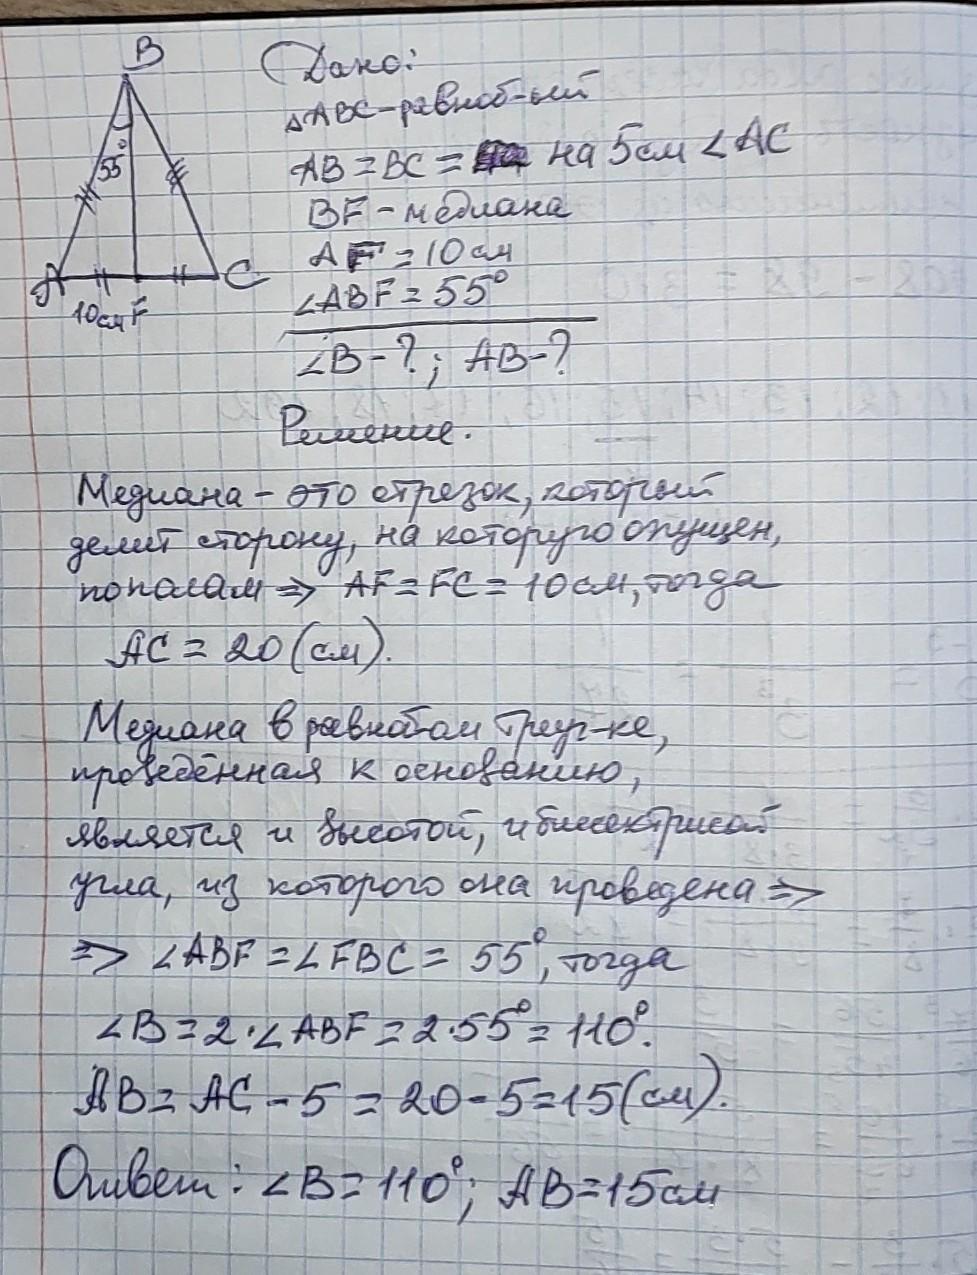 B
55°
A
C
10см F
Дано:
△ABC-равноб-ый
AB = BC = на 5см < AC
BF - медиана
AF = 10 см
∠ABF = 55°
∠B - ?; AB - ?
Решение.
Медиана - это отрезок, который
делит сторону, на которую опущен,
пополам => AF = FC = 10 см, тогда
AC = 20 (см).
Медиана в равнобом треуг-ке,
проведённая к основанию,
является и высотой, и биссектрисой
угла, из которого она проведена =>
=> ∠ABF = ∠FBC = 55°, тогда
∠B = 2·∠ABF = 2·55° = 110°.
AB = AC - 5 = 20 - 5 = 15 (см).
Ответ: ∠B = 110°; AB = 15 см